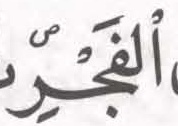 ٱلفَجْرِ